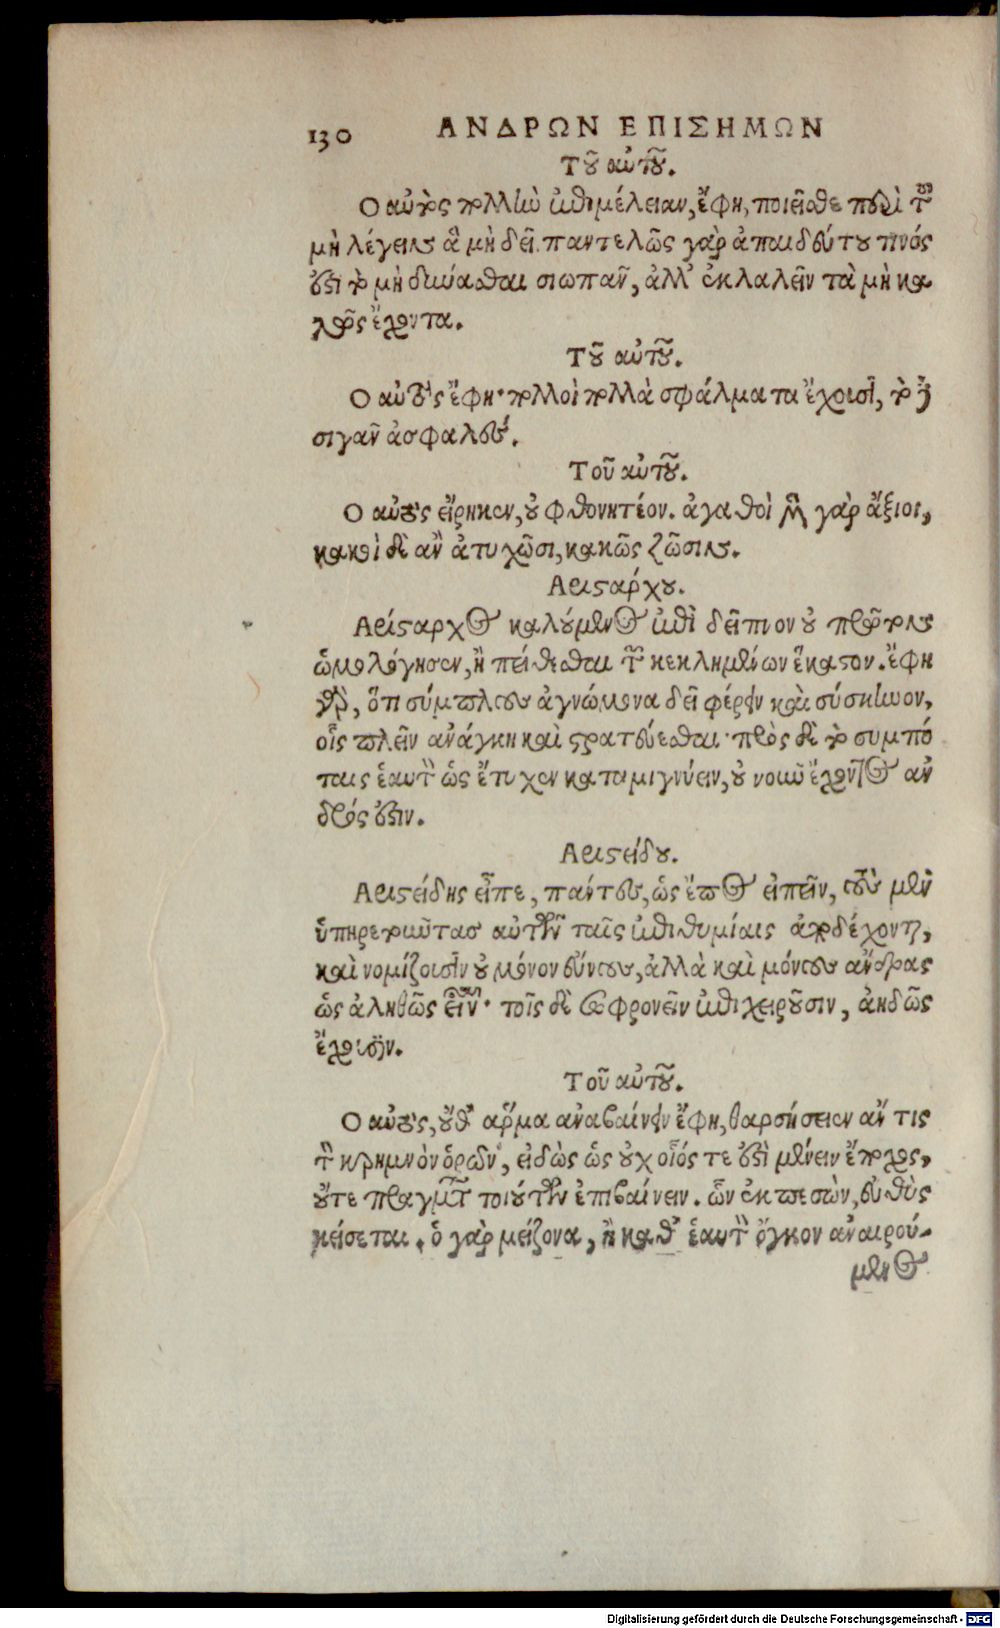 130 ΑΝΔΡΩΝ ΕΠΙΣΗΜΩΝ
Τοῦ αὐτοῦ.
Ο αὐτὸς πολλὴν ἐπιμέλειαν, ἔφη, ποιεῖσθε περὶ τοῦ
μὴ λέγειν ἃ μὴ δεῖ. παντελῶς γὰρ ἀπαιδεύτου τινός
ἐστι τὸ μὴ δύνασθαι σιωπᾶν, ἀλλ' ἐκλαλεῖν τὰ μὴ κα
λῶς ἔχοντα.
Τοῦ αὐτοῦ.
Ο αὐτὸς ἔφη· πολλοὶ πολλὰ σφάλματα ἔχουσι, τὸ δὲ
σιγᾶν ἀσφαλές.
Τοῦ αὐτοῦ.
Ο αὐτὸς εἴρηκεν, οὐ φθονητέον. ἀγαθοὶ μὲν γὰρ ἄξιοι,
κακοὶ δὲ ἂν ἀτυχῶσι, κακῶς ζῶσιν.
Αριστάρχου.
Αρίσταρχος καλούμενος ἐπὶ δεῖπνον οὐ πρῶτον
ὡμολόγησεν, ἢ πείθεσθαι τῶν κεκλημένων ἕκαστον. ἔφη
γὰρ, ὅτι σύμπλουν ἀγνώμονα δεῖ φέρειν καὶ σύσκηνον,
οἷς πλεῖν ἀνάγκη καὶ στρατεύεσθαι· πρὸς δὲ τὸ συμπό
ταις ἑαυτὸν ὡς ἔτυχεν καταμιγνύειν, οὐ νοῦν ἔχοντος ἀν
δρός ἐστιν.
Αριστείδου.
Αριστείδης εἶπε, πάντες, ὡς ἔπος εἰπεῖν, τοὺς μὲν
ὑπηρετοῦντας αὐτῶν ταῖς ἐπιθυμίαις ἀποδέχονται,
καὶ νομίζουσιν οὐ μόνον εὔνους, ἀλλὰ καὶ μόνους ἄνδρας
ὡς ἀληθῶς εἶναι· τοῖς δὲ σωφρονεῖν ἐπιχειροῦσιν, ἀηδῶς
ἔχουσιν.
Τοῦ αὐτοῦ.
Ο αὐτὸς, οὔθ' ἅρμα ἀναβαίνειν ἔφη, θαρσήσειεν ἄν τις
τὸν κρημνὸν ὁρῶν, εἰδὼς ὡς οὐχ οἷός τε ἐστὶ μένειν ἔποχος,
οὔτε πραγμάτων τοιούτων ἐπιβαίνειν. ὧν ἐκπεσὼν, εὐθὺς
κείσεται. ὁ γὰρ μείζονα, ἢ καθ' ἑαυτὸν ὄγκον ἀναιρού-
μενος
Digitalisierung gefördert durch die Deutsche Forschungsgemeinschaft - DFG